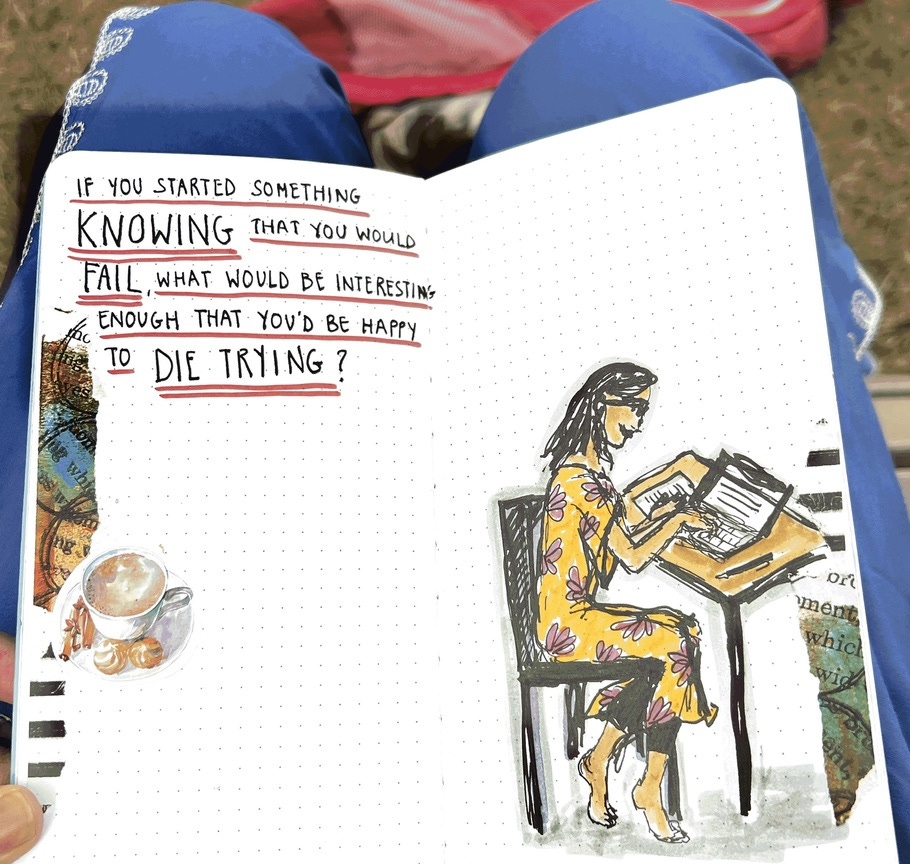 IF YOU STARTED SOMETHING
KNOWING THAT YOU WOULD
FAIL, WHAT WOULD BE INTERESTING
ENOUGH THAT YOU'D BE HAPPY
TO DIE TRYING?
which